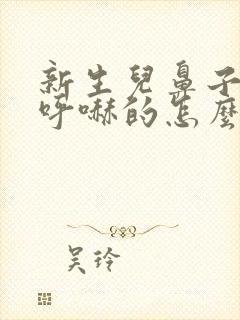 新生兒鼻子
呼嚇的怎麼
吴玲